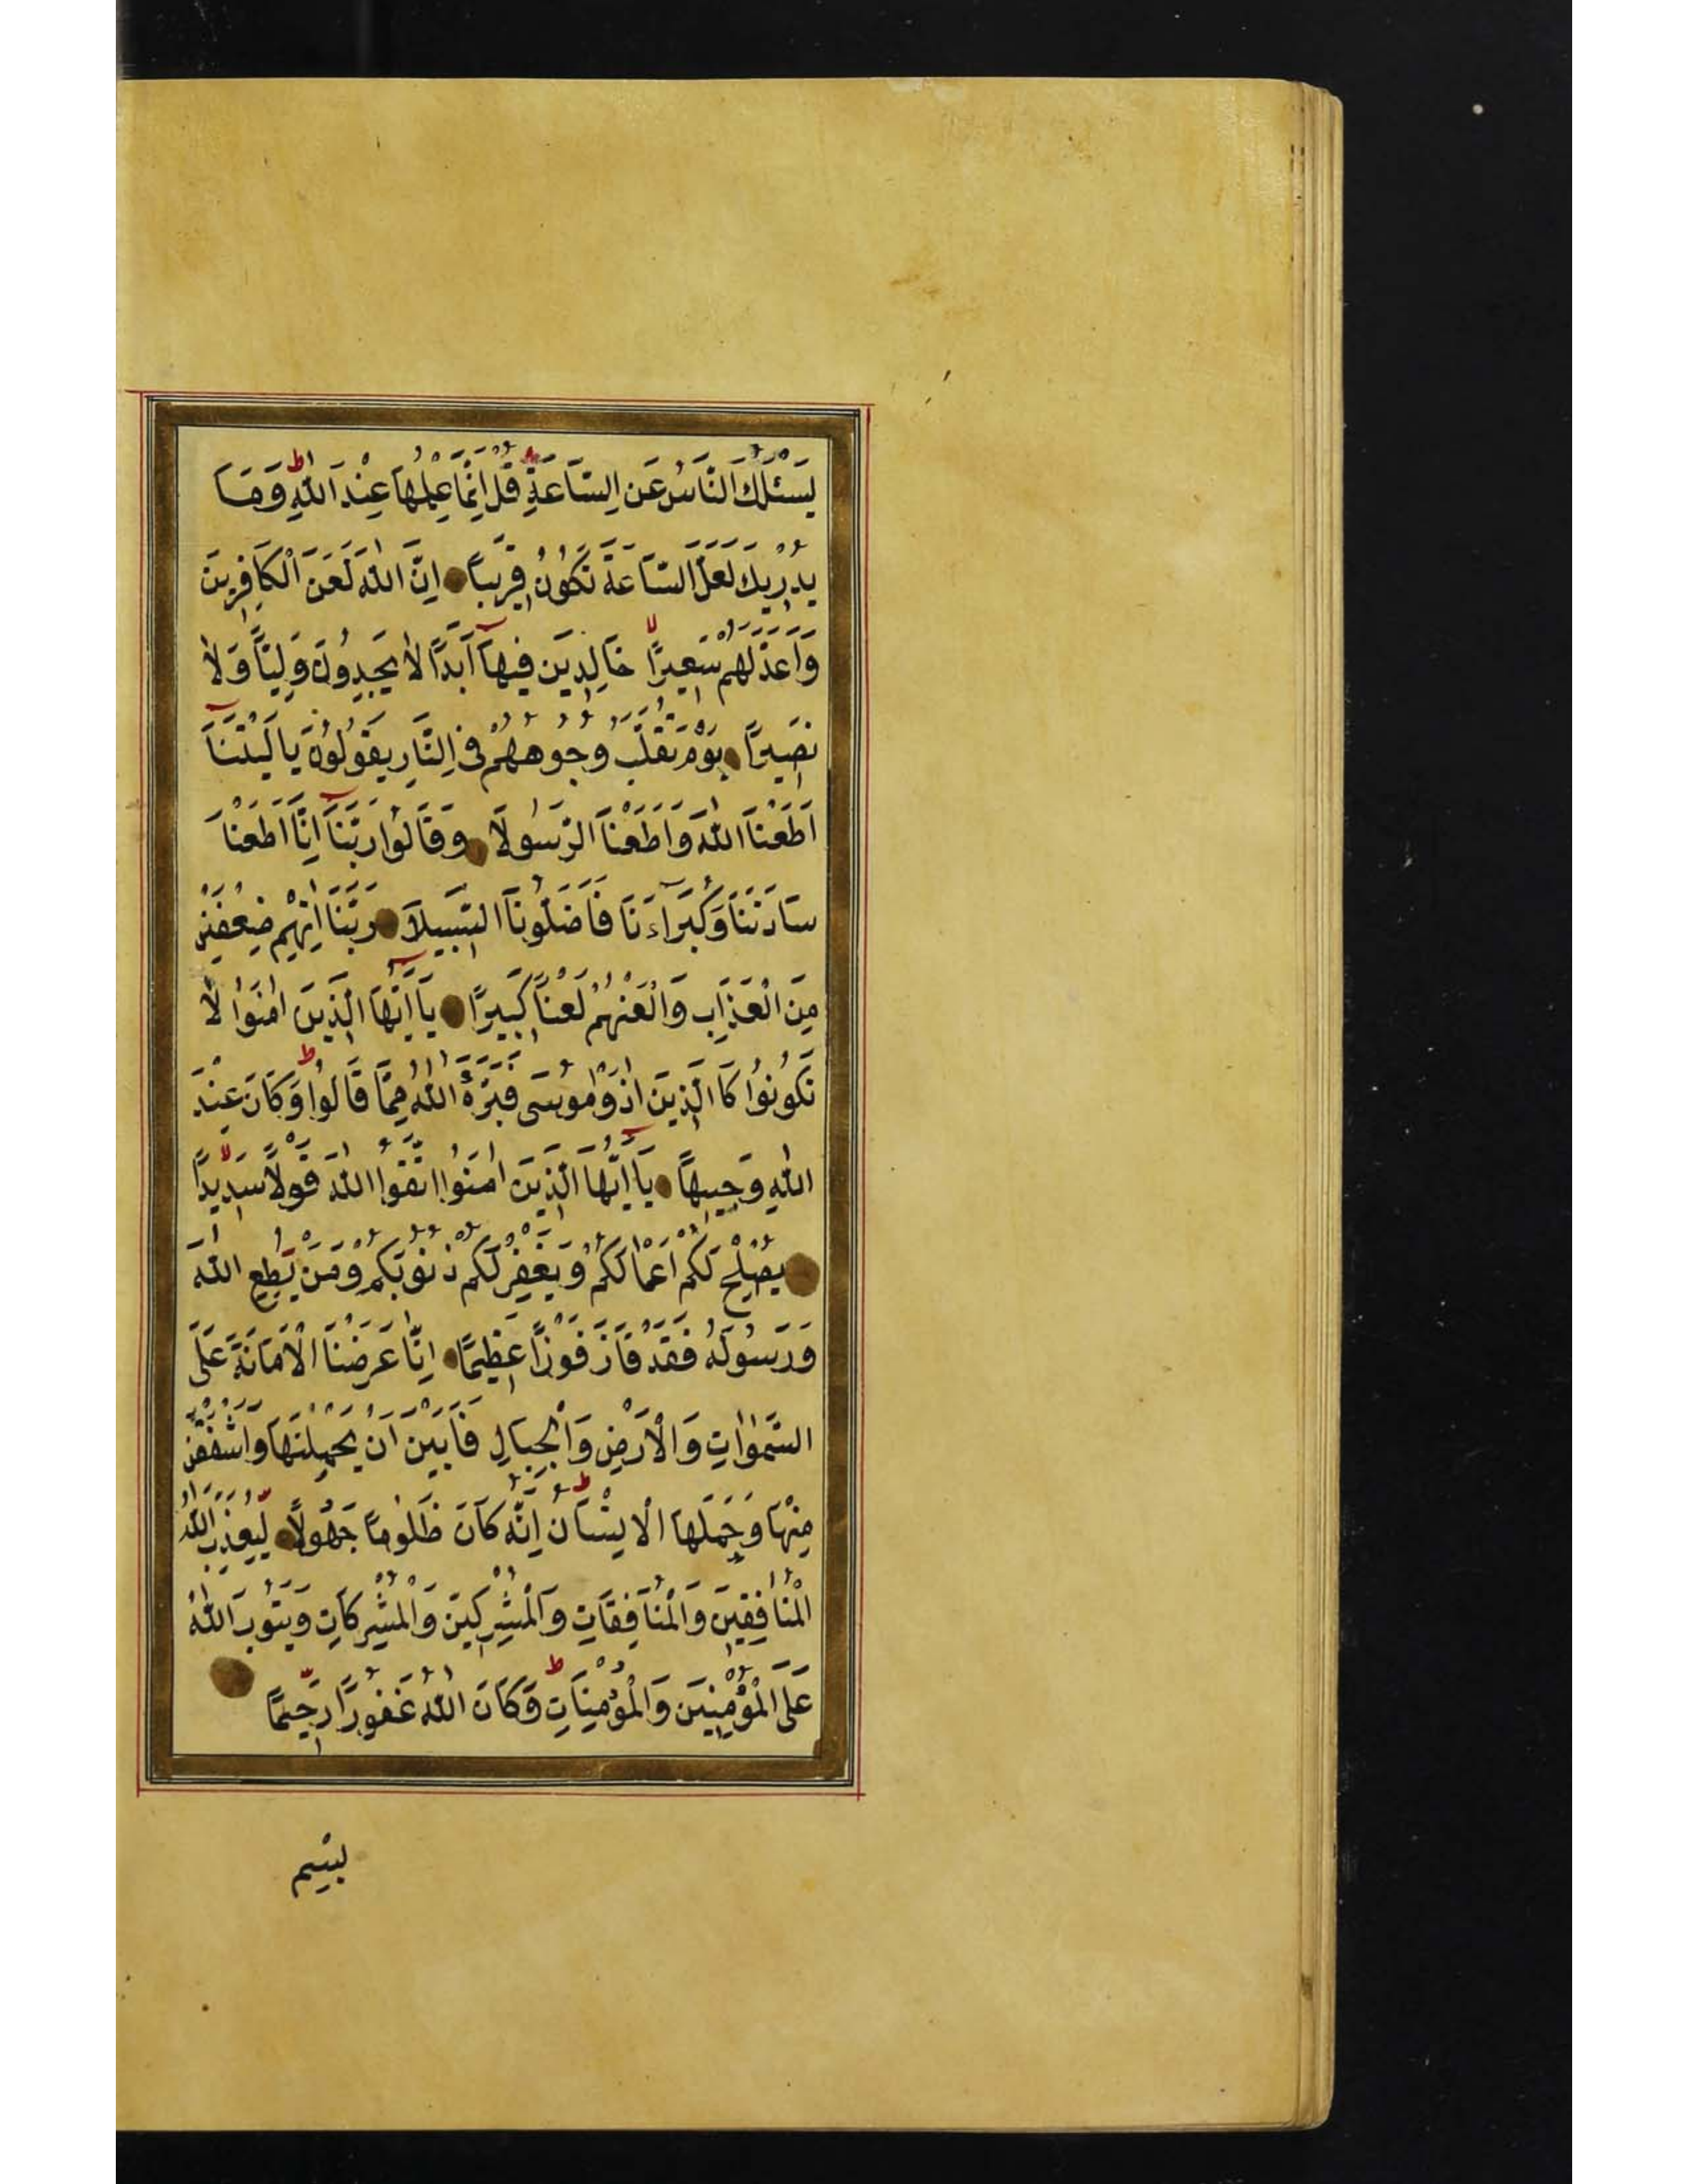 يَسْئَلُكَ النَّاسُ عَنِ السَّاعَةِ قُلْ اِنَّمَا عِلْمُهَا عِنْدَ اللّٰهِ ط وَمَا
يُدْرِيكَ لَعَلَّ السَّاعَةَ تَكُونُ قَرِيبًا اِنَّ اللّٰهَ لَعَنَ الْكَافِرِينَ
وَاَعَدَّ لَهُمْ سَعِيرًا لا خَالِدِينَ فِيهَآ اَبَدًا لَا يَجِدُونَ وَلِيًّا وَلَا
نَصِيرًا يَوْمَ تُقَلَّبُ وُجُوهُهُمْ فِي النَّارِ يَقُولُونَ يَا لَيْتَنَآ
اَطَعْنَا اللّٰهَ وَاَطَعْنَا الرَّسُولَا وَقَالُوا رَبَّنَآ اِنَّا اَطَعْنَا
سَادَتَنَا وَكُبَرَاءَنَا فَاَضَلُّونَا السَّبِيلَا رَبَّنَا اٰتِهِمْ ضِعْفَيْنِ
مِنَ الْعَذَابِ وَالْعَنْهُمْ لَعْنًا كَبِيرًا يَآ اَيُّهَا الَّذِينَ اٰمَنُوا لَا
تَكُونُوا كَا الَّذِينَ اٰذَوْا مُوسٰى فَبَرَّاَهُ اللّٰهُ مِمَّا قَالُوا ط وَكَانَ عِنْدَ
اللّٰهِ وَجِيهًا يَآ اَيُّهَا الَّذِينَ اٰمَنُوا اتَّقُوا اللّٰهَ قَوْلًا سَدِيدًا لا
يُصْلِحْ لَكُمْ اَعْمَالَكُمْ وَيَغْفِرْ لَكُمْ ذُنُوبَكُمْ وَمَنْ يُطِعِ اللّٰهَ
وَرَسُولَهُ فَقَدْ فَازَ فَوْزًا عَظِيمًا اِنَّا عَرَضْنَا الْاَمَانَةَ عَلَى
السَّمٰوَاتِ وَالْاَرْضِ وَالْجِبَالِ فَاَبَيْنَ اَنْ يَحْمِلْنَهَا وَاَشْفَقْنَ
مِنْهَا وَحَمَلَهَا الْاِنْسَانُ ط اِنَّهُ كَانَ ظَلُومًا جَهُولًا لِيُعَذِّبَ اللّٰهُ
الْمُنَافِقِينَ وَالْمُنَافِقَاتِ وَالْمُشْرِكِينَ وَالْمُشْرِكَاتِ وَيَتُوبَ اللّٰهُ
عَلَى الْمُؤْمِنِينَ وَالْمُؤْمِنَاتِ ط وَكَانَ اللّٰهُ غَفُورًا رَحِيمًا
بِسْمِ